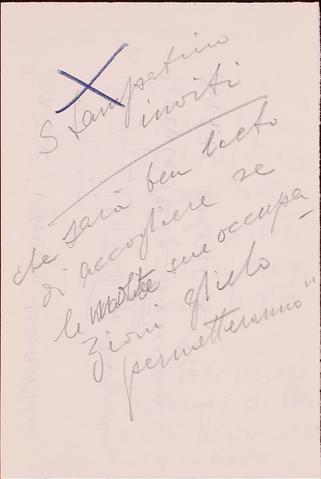 Stampatino
inviti
che sarà ben lieto
di accogliere se
le molte sue occupa
zioni glielo
permetteranno"